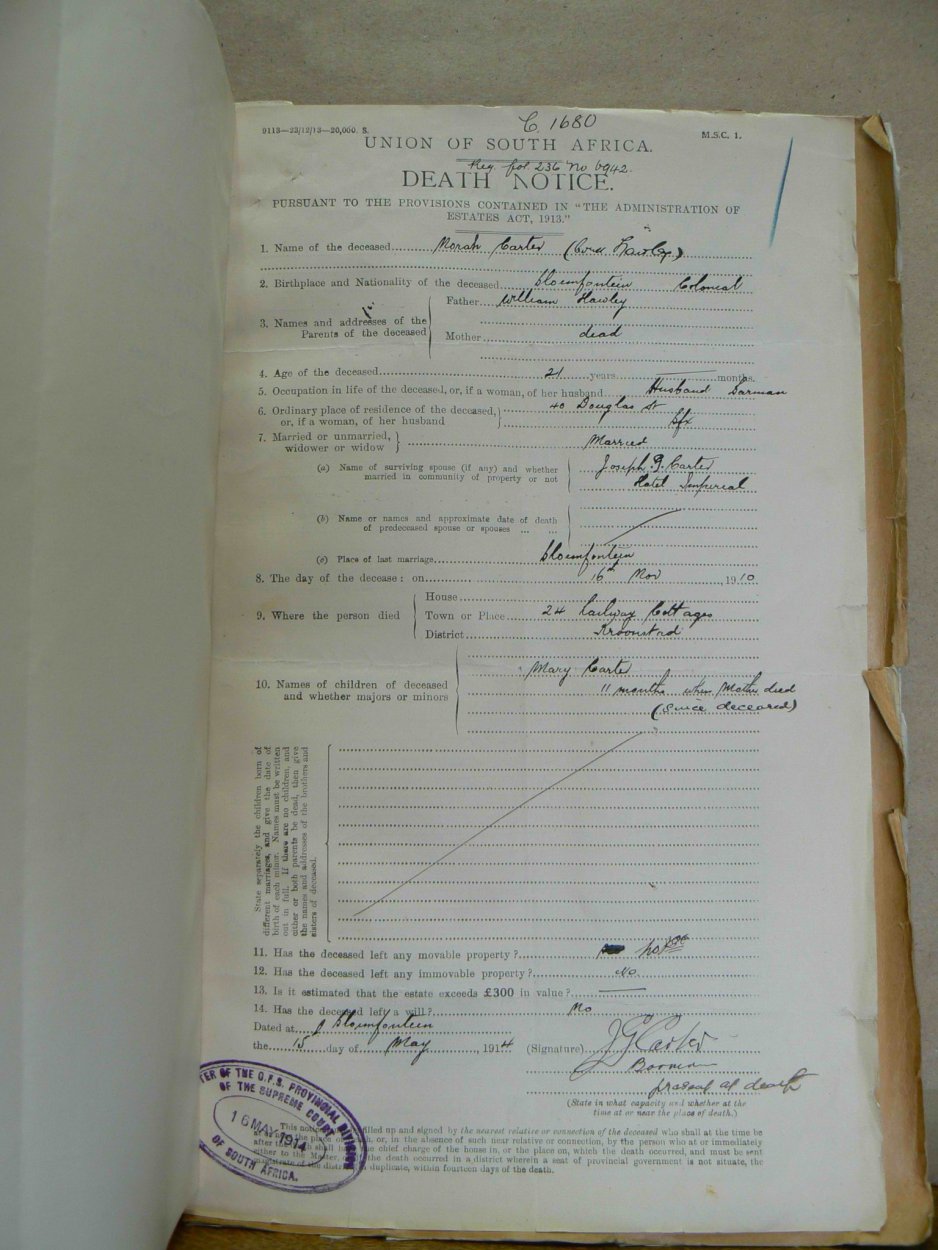 C. 1680
9113—23/12/13—20,000. S. M.S.C. 1.
UNION OF SOUTH AFRICA.
Reg. fol 236 No 6942.
DEATH NOTICE.
PURSUANT TO THE PROVISIONS CONTAINED IN "THE ADMINISTRATION OF
ESTATES ACT, 1913."
1. Name of the deceased Norah Carter (born Hawley)
2. Birthplace and Nationality of the deceased Bloemfontein Colonial
3. Names and addresses of the
Parents of the deceased
Father William Hawley
Mother dead
4. Age of the deceased 21 years months.
5. Occupation in life of the deceased, or, if a woman, of her husband Husband Barman
6. Ordinary place of residence of the deceased,
or, if a woman, of her husband
40 Douglas St
Bfn
7. Married or unmarried,
widower or widow
Married
(a) Name of surviving spouse (if any) and whether
married in community of property or not
Joseph G. Carter
Hotel Imperial
(b) Name or names and approximate date of death
of predeceased spouse or spouses ... ...
(c) Place of last marriage Bloemfontein
8. The day of the decease: on 16th Nov , 1910.
9. Where the person died
House
Town or Place 24 Railway Cottages
District Kroonstad
10. Names of children of deceased
and whether majors or minors
Mary Carter
11 months when Mother died
(since deceased)
State separately the children born of
different marriages, and give the date of
birth of each minor. Names must be written
out in full. If there are no children, and
either or both parents be dead, then give
the names and addresses of the brothers and
sisters of deceased.
11. Has the deceased left any movable property?
12. Has the deceased left any immovable property? No.
13. Is it estimated that the estate exceeds £300 in value?
14. Has the deceased left a will? No
Dated at Bloemfontein
the 15 day of May , 1914
(Signature) J G Carter
Barman
present at death
(State in what capacity and whether at the
time at or near the place of death.)
TER OF THE O.F.S. PROVINCIAL DIVISION
OF THE SUPREME COURT
16 MAY 1914
OF SOUTH AFRICA.
This noti filled up and signed by the nearest relative or connection of the deceased who shall at the time be
at the place or, in the absence of such near relative or connection, by the person who at or immediately
after the chief charge of the house in, or the place on, which the death occurred, and must be sent
either to the Master, the death occurred in a district wherein a seat of provincial government is not situate, the
magistrate of the district duplicate, within fourteen days of the death.